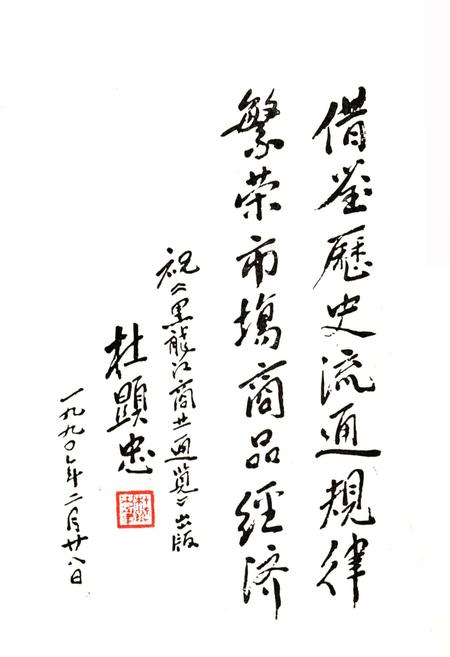 借鉴歷史流通規律
繁荣市場商品經济
祝《黑龍江商业通览》出版
杜顯忠
一九九〇年二月廿八日